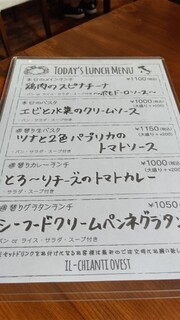 TODAY'S LUNCH MENU
¥1100(税込)
鶏肉のスピナチーナ
〜ポモドーロソース〜
パン or ライス・サラダ・スープ付き
¥1000(税込)
エビと水菜のクリームソース
パン・サラダ・スープ付き
¥1150(税込)
ツナと2色パプリカの
トマトソース
パン・サラダ・スープ付き
カレーランチ
¥1000(税込)
とろ〜りチーズのトマトカレー
サラダ・スープ付き
グラタンランチ
¥1050
シーフードクリームペンネグラタン
パン or ライス・サラダ・スープ付き
IL-CHIANTI OVEST